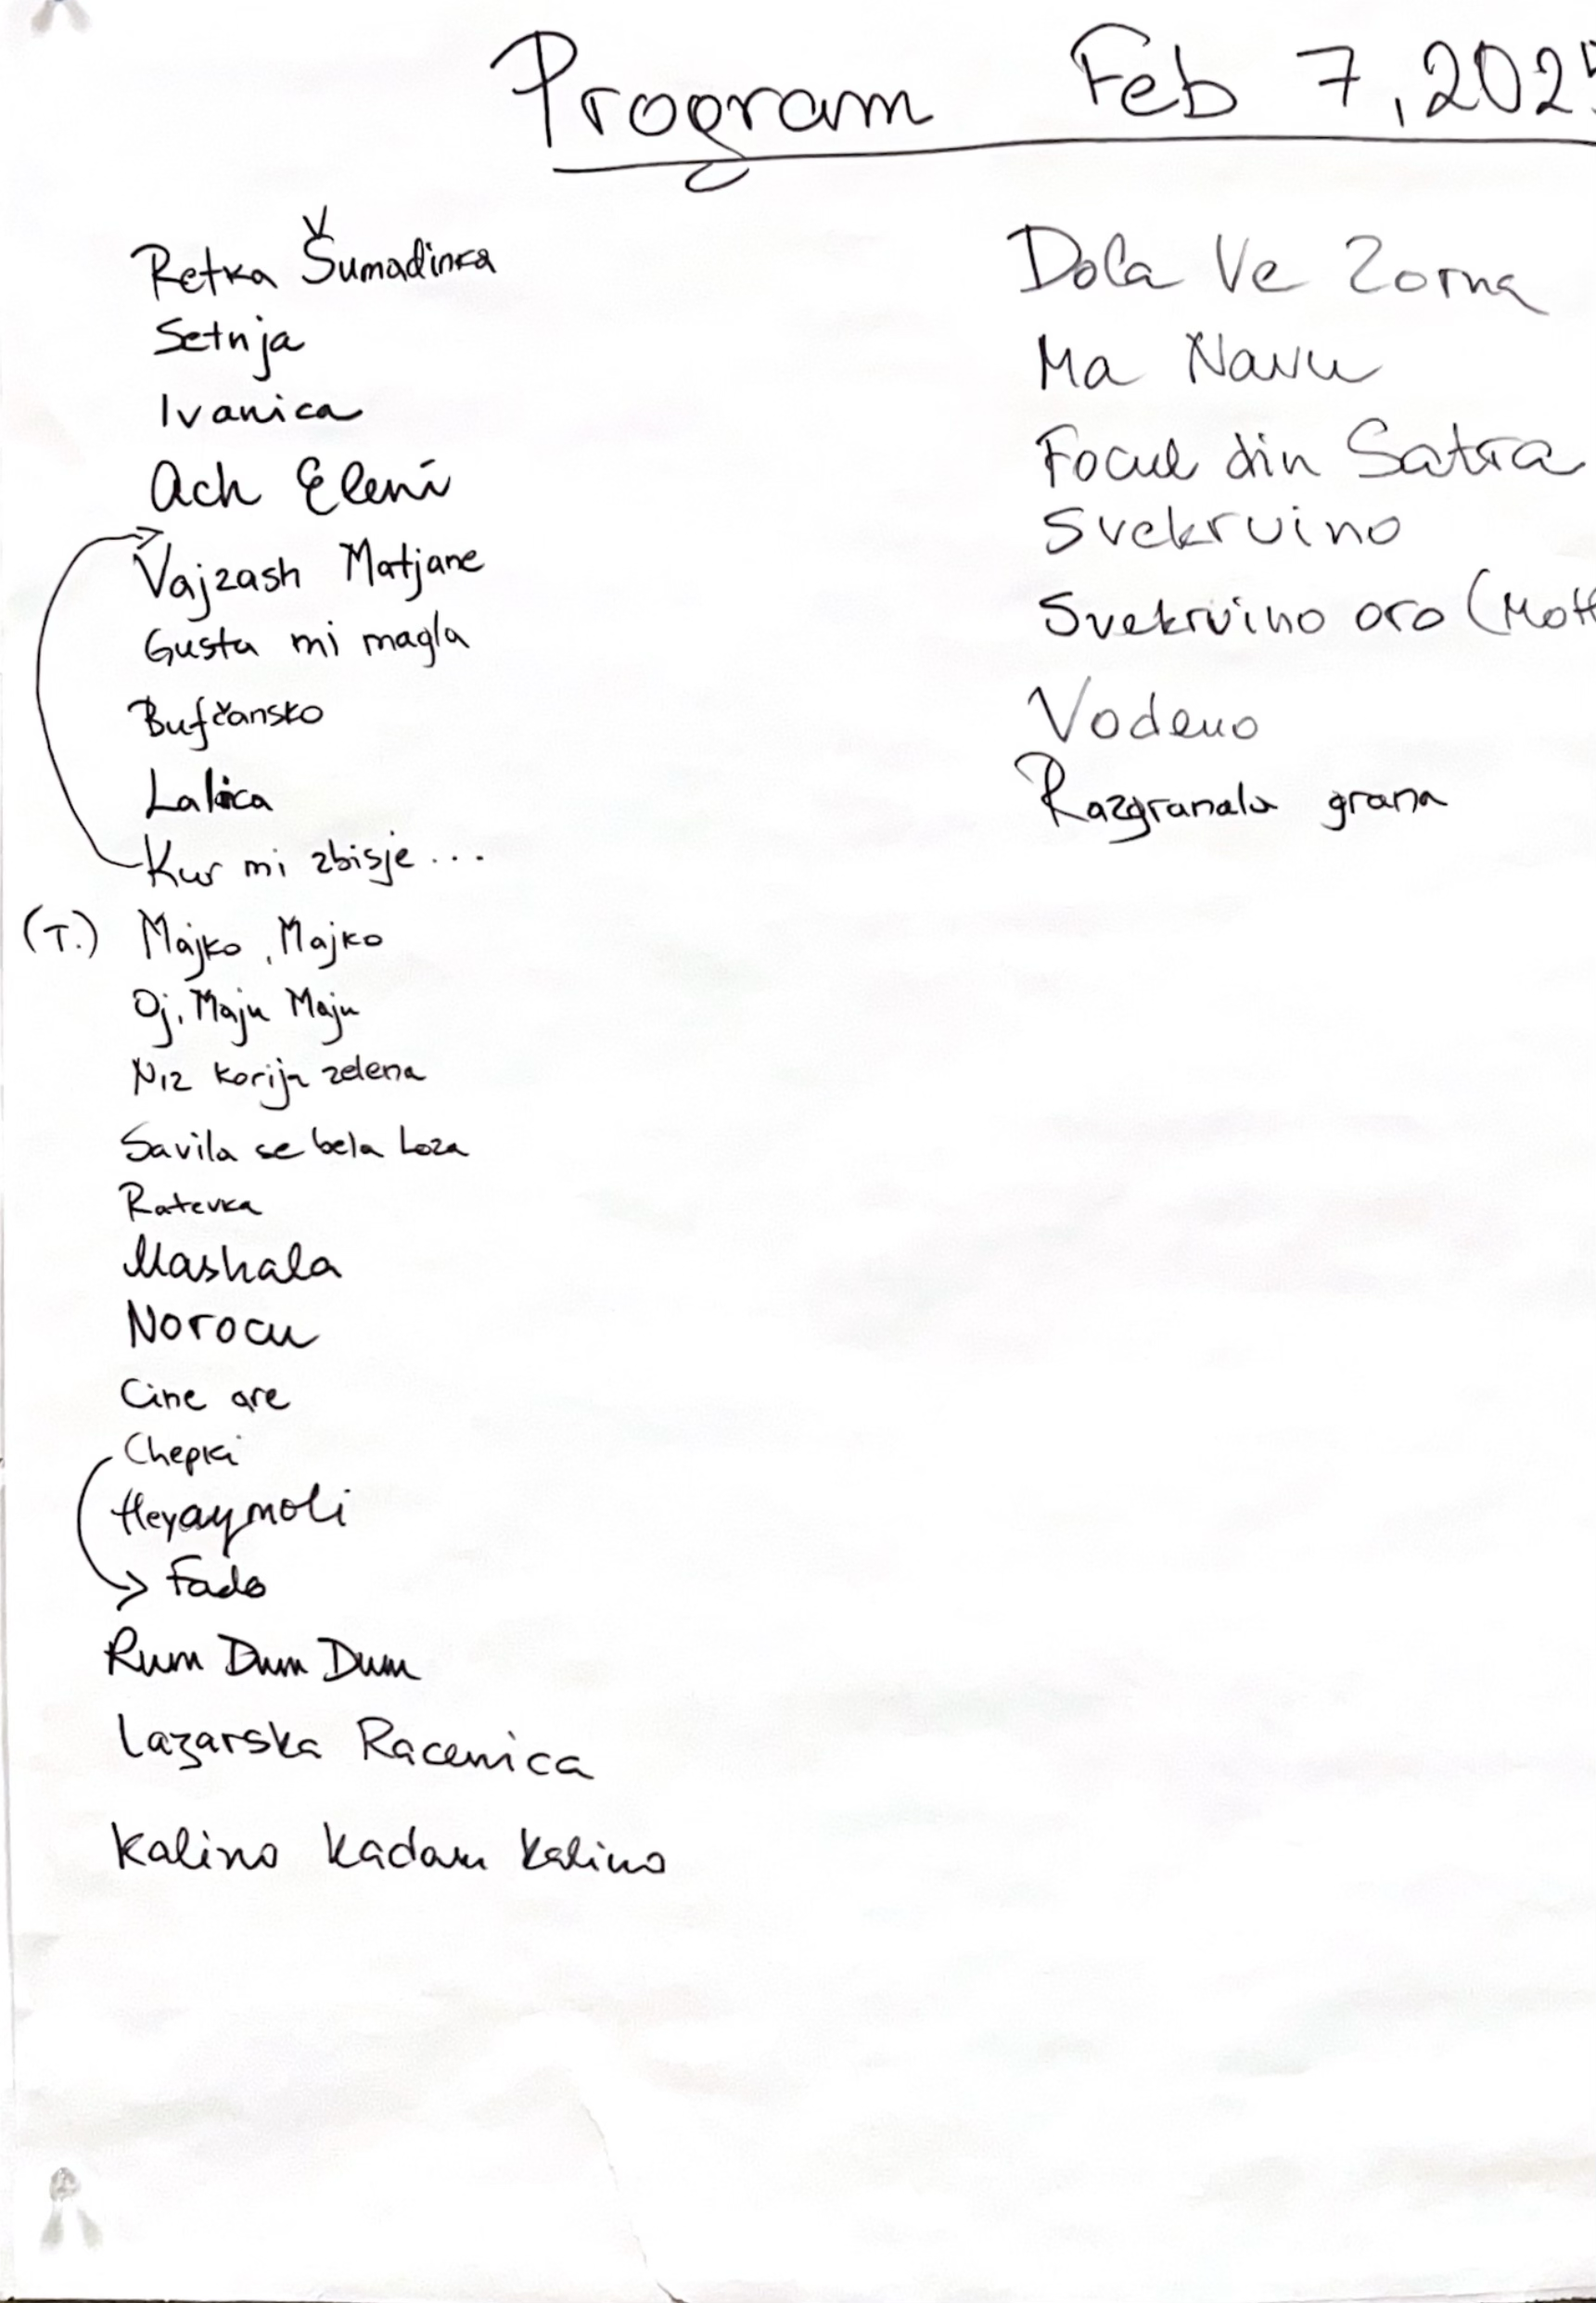 Program Feb 7, 202
Retka Šumadinka
Setnja
Ivanica
Ach Elení
Vajzash Matjane
Gusta mi magla
Bufčansko
Lalica
Kur mi zbisje...
(T.) Majko, Majko
Oj, Maju Maju
Niz korija zelena
Savila se bela Loza
Ratevka
Mashala
Norocu
Cine are
Chepki
Heyaymoli
Fado
Rum Dum Dum
Lazarska Racenica
Kalino Kadam Kalino
Dola Ve Zorna
Ma Navu
Focul din Satra
Svekrvino
Svekrvino oro (Mott
Vodeno
Razgranala grana